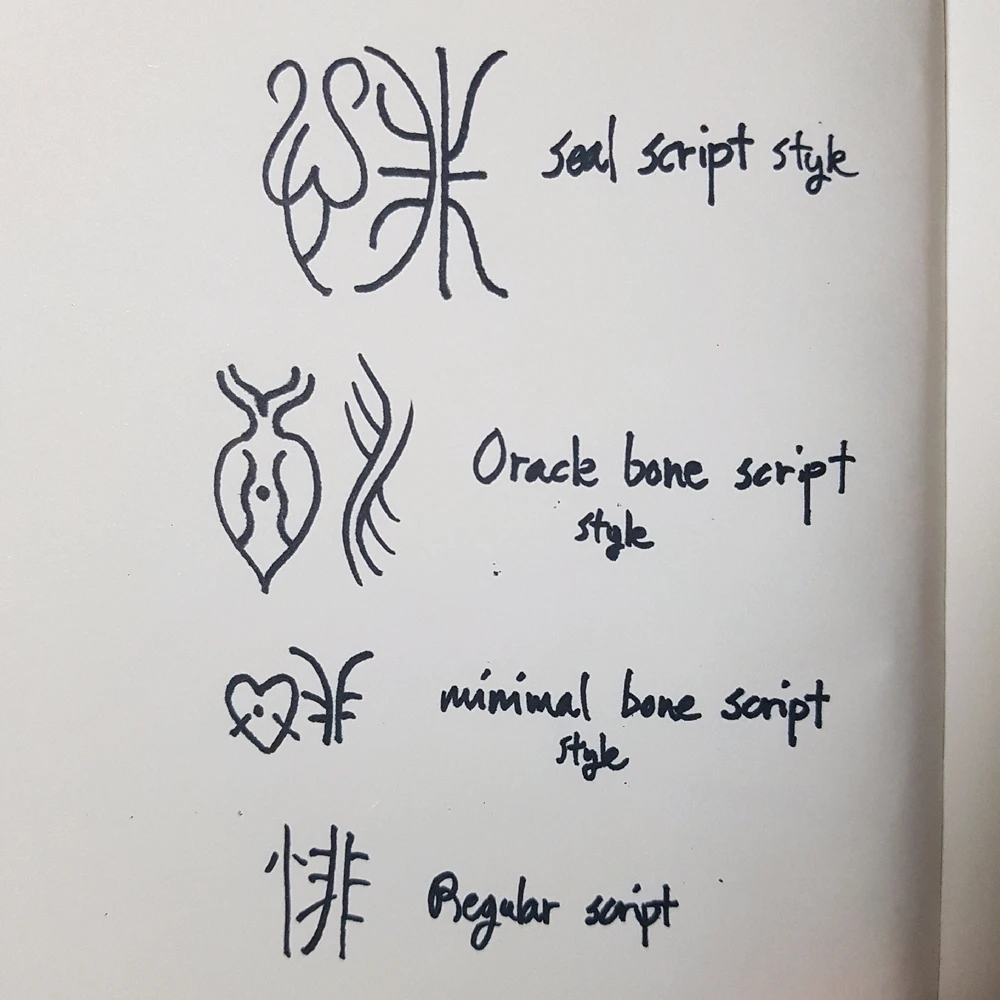 seal script style
Oracle bone script
style
minimal bone script
style
悱 Regular script